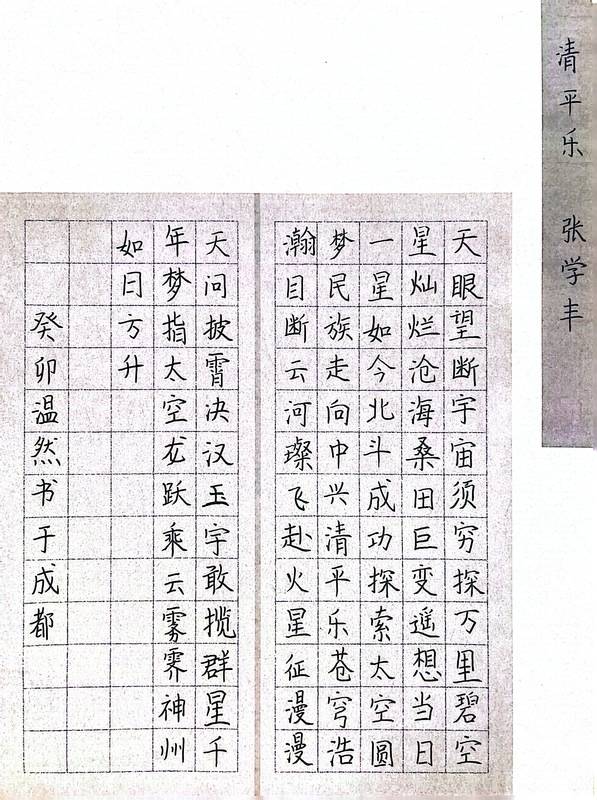 清平乐 张学丰
天眼望断宇宙须穷探万里碧空
星灿烂沧海桑田巨变遥想当日
一星如今北斗成功探索太空圆
梦民族走向中兴清平乐苍穹浩
瀚目断云河璨飞赴火星征漫漫
天问披霄决汉玉宇敢揽群星千
年梦指太空龙跃乘云雾霁神州
如日方升
癸卯温然书于成都